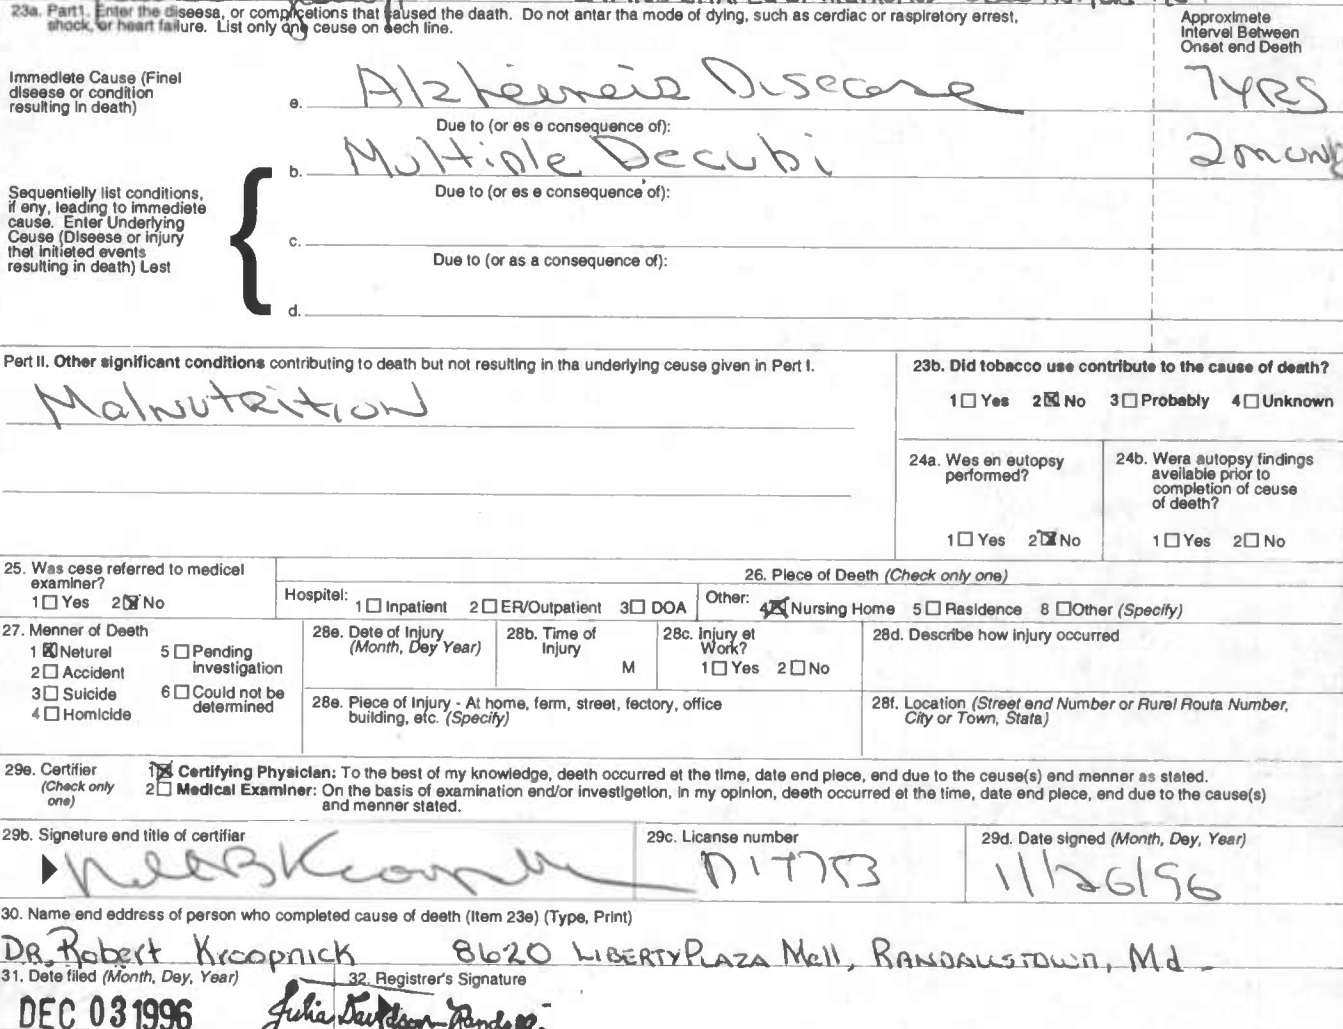 23a. Part1. Enter the diseesa, or complicetions that caused the daath. Do not antar tha mode of dying, such as cerdiac or raspiretory errest,
shock, or heart failure. List only one ceuse on eech line.
Approximete
Intervel Between
Onset end Deeth
Immediete Cause (Finel
disease or condition
resulting in death)
e. Alzheimeis Disecase 7YRS
Due to (or es e consequence of):
b. Multiple Decubi 2 mont
Due to (or es e consequence of):
Sequentielly list conditions,
if eny, leading to immediete
cause. Enter Underlying
Ceuse (Diseese or injury
thet initieted events
resulting in death) Lest
c.
Due to (or as a consequence of):
d.
Pert II. Other significant conditions contributing to death but not resulting in tha underlying ceuse given in Pert I.
Malnutrition
23b. Did tobacco use contribute to the cause of death?
1 Yes 2 No 3 Probably 4 Unknown
24a. Wes en eutopsy
performed?
1 Yes 2 No
24b. Wera autopsy findings
aveilable prior to
completion of ceuse
of deeth?
1 Yes 2 No
25. Was cese referred to medicel
examiner?
1 Yes 2 No
26. Plece of Deeth (Check only one)
Hospitel: 1 Inpatient 2 ER/Outpatient 3 DOA Other: 4 Nursing Home 5 Rasidence 8 Other (Specify)
27. Menner of Death
1 Neturel
2 Accident
3 Suicide
4 Homicide
5 Pending
investigation
6 Could not be
determined
28e. Dete of Injury
(Month, Dey Year)
28b. Time of
Injury
M
28c. Injury et
Work?
1 Yes 2 No
28d. Describe how injury occurred
28e. Plece of Injury - At home, ferm, street, fectory, office
building, etc. (Specify)
28f. Locetion (Street end Number or Rurel Routa Number,
City or Town, Stata)
29e. Certifier
(Check only
one)
1 Certifying Physician: To the best of my knowledge, deeth occurred et the time, date end plece, end due to the ceuse(s) end menner as stated.
2 Medical Examiner: On the basis of examination end/or investigetion, in my opinion, deeth occurred et the time, date end plece, end due to the cause(s)
and menner stated.
29b. Signeture end title of certifiar
29c. License number
D17753
29d. Date signed (Month, Dey, Year)
11/26/96
30. Name end eddress of person who completed cause of death (Item 23e) (Type, Print)
DR. Robert Kroopnick 8620 LIBERTY PLAZA Mall, RANDALLSTOWN, Md.
31. Dete filed (Month, Day, Year)
DEC 03 1996
32. Registrer's Signature
Julia Davidson-Randall